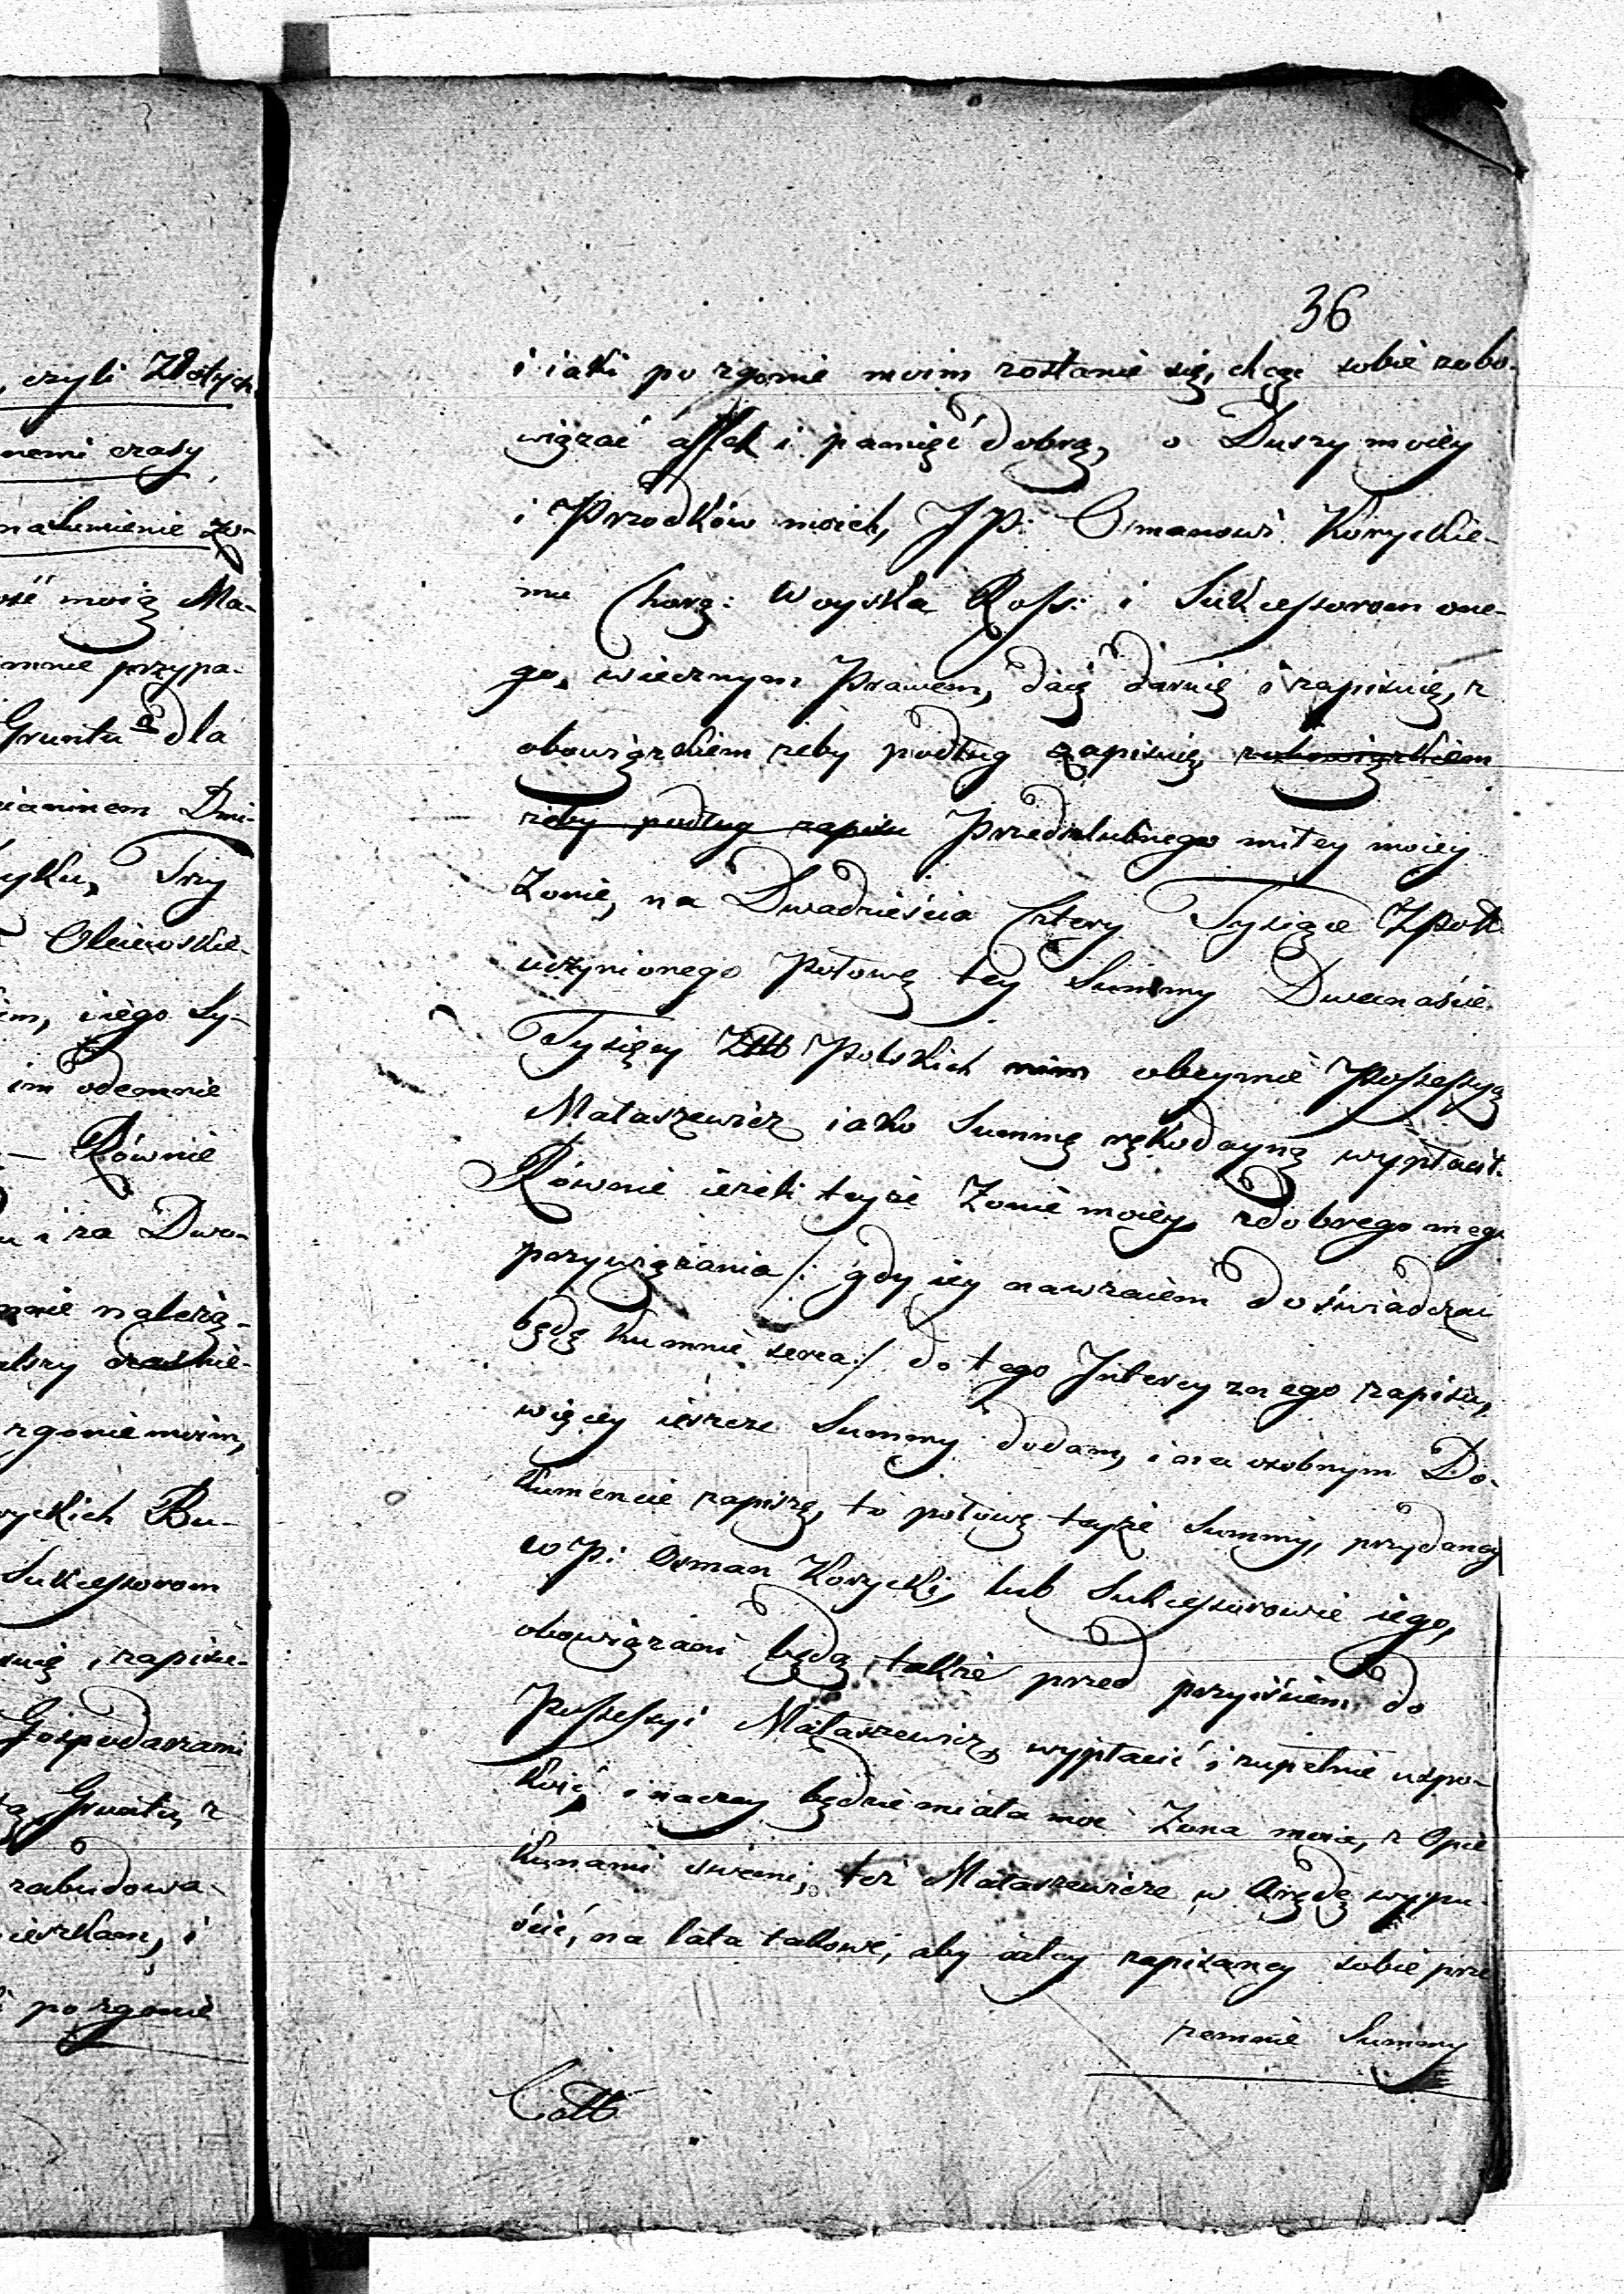 czyli Złotych
nemi czasy
naturnienie
moią Ma-
mnie przypa-
Gruntu dla
Dmi-
Trzy
im, i iego Sy-
im odemnie
— Równie
i za Dwo-
mnie należą-
zgonie moim,
Bu-
Sukcessorom
zapisu-
Gospodarzami
Gruntu, z
zabudowa-
i
po zgonie
36
i iaki po zgonie moim zostanie się, chcąc sobie zobo-
wiązać affek i pamięć dobrą, o Duszy moiey
i Przodków moich, J P: Osmanowi Koryckie-
mu Chorą: Woyska Ross: i Sukcessorom one-
go, wiecznym Prawem, daię daruię i zapisuię, z
obowiązkiem żeby podług zapisuię, z obowiązkiem
żeby podług zapisu Przedślubnego miłey moiey
Żonie, na Dwadzieścia Cztery Tysiące Zł Pol:
uczynionego Połowę tey Summy Dwanaście
Tysięcy Zło Polskich nim obeymie Possessyą
Mataszewicz iako Summę rękodayną wypłacił.
Równie ieżeli teyże Żonie moiey, z dobrego mego
przywiązania /: gdy iey nawzaiem doświadczać
będę ku mnie serca :/ do tego Intercyznego zapisu,
więcey ieszcze Summy dodam, i na osobnym Do-
kumencie zapiszę, to połowę teyże Summy, przydaney
W P: Osman Korycki, lub Sukcessorowie iego,
obowiązani będą, także przed przyiściem do
Possessyi Mataszewicz, wypłacić i zupełnie uspo-
koić, inaczey będzie miała moc Żona moia, z Opie
kunami swemi, też Mataszewicze w Arędę wypu-
ścić, na lata takowe, aby całey zapisaney sobie prze
zemnie Summy